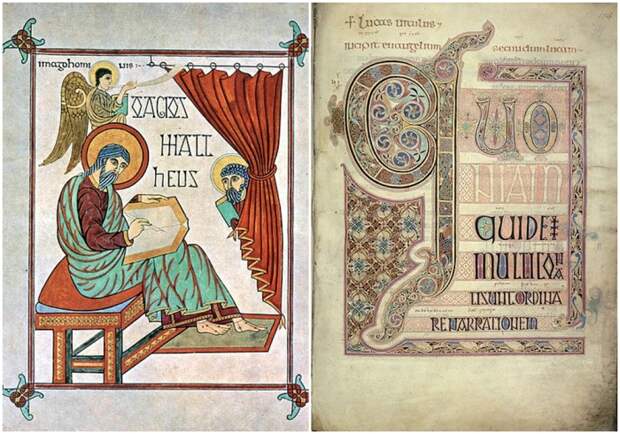 imagohomi nis
O AGIOS
MATT
HEUS
+ Lucas uitulus
incipit euangelium secundum lucam
QUO
NIAM
QUIDE
MULTICONA
TISUNTORDINA
RENARRATIONEM